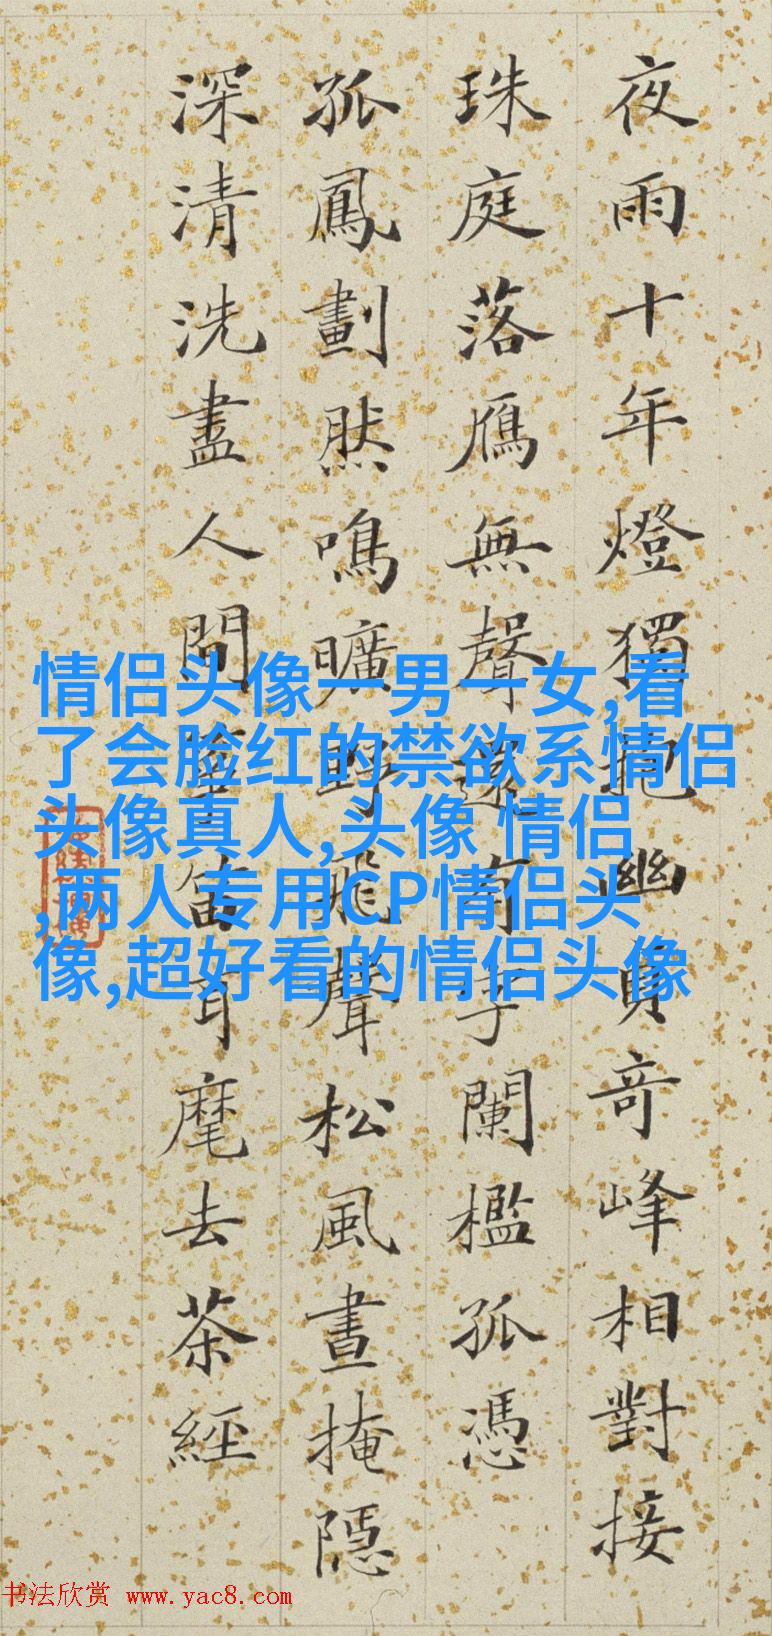 夜雨十年燈獨抱幽貞奇峰相對接
珠庭落鴈無聲還有字闌檻孤憑
孤鳳劃然鳴曠野飛聲松風晝掩隱
深清洗盡人間箏笛耳麾去茶經
情侣头像一男一女,看
了会脸红的禁欲系情侣
头像真人,头像 情侣
,两人专用CP情侣头
像,超好看的情侣头像
书法欣赏 www.yac8.com